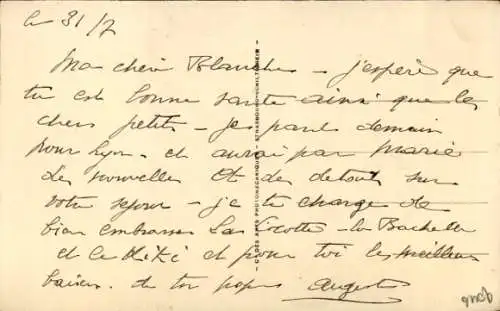 le 31/7
Ma chère Blanche - j'espère que
tu est bonne santé ainsi que les
chers petits - je pars demain
pour Lyon - et aurai par Marie
des nouvelles et des details sur
votre séjour - je te charge de
bien embrasser la Cocotte - la
et le Kiki et pour toi les meilleurs
baisers de ton papa August
CADÉS ARTS PHOTOMÉCANIQUES - STRASBOURG-SCHILTIGHEIM